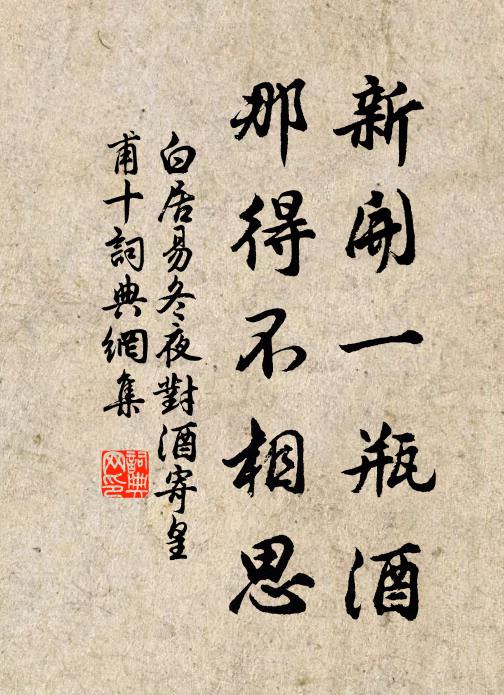 新開一瓶酒
那得不相思
白居易冬夜對酒寄皇
甫十詞典網集
詞典
网印